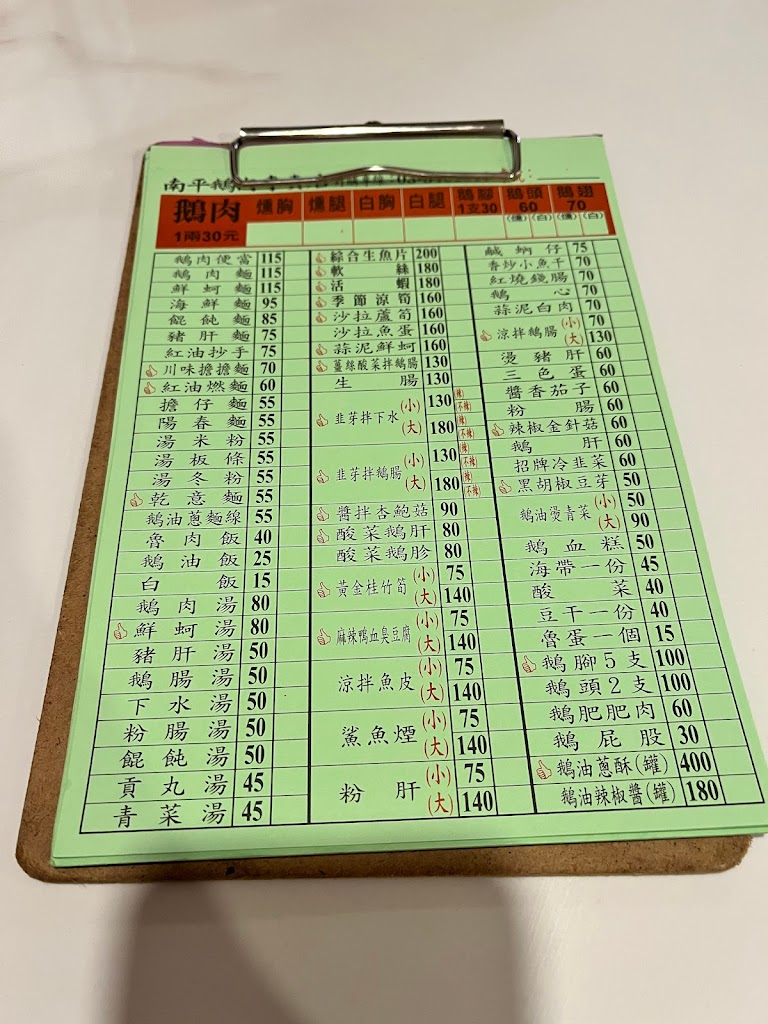 南平鵝
鵝肉 燻胸 燻腿 白胸 白腿 鵝腳 鵝頭 鵝翅
1兩30元 1支30 60 70
(燻) (白) (燻) (白)
鵝肉便當 115
鵝肉麵 115
鮮蚵麵 115
海鮮麵 95
餛飩麵 85
豬肝麵 75
紅油抄手 75
川味擔擔麵 70
紅油燃麵 60
擔仔麵 55
陽春麵 55
湯米粉 55
湯板條 55
湯冬粉 55
乾意麵 55
鵝油蔥麵線 55
魯肉飯 40
鵝油飯 25
白飯 15
鵝肉湯 80
鮮蚵湯 80
豬肝湯 50
鵝腸湯 50
下水湯 50
粉腸湯 50
餛飩湯 50
貢丸湯 45
青菜湯 45
綜合生魚片 200
軟絲 180
活蝦 180
季節涼筍 160
沙拉蘆筍 160
沙拉魚蛋 160
蒜泥鮮蚵 160
薑絲酸菜拌鵝腸 130
生腸 130
韭芽拌下水 (小) 130 (辣) (不辣)
(大) 180 (辣) (不辣)
韭芽拌鵝腸 (小) 130 (辣) (不辣)
(大) 180 (辣) (不辣)
醬拌杏鮑菇 90
酸菜鵝肝 80
酸菜鵝胗 80
黃金桂竹筍 (小) 75
(大) 140
麻辣鴨血臭豆腐 (小) 75
(大) 140
涼拌魚皮 (小) 75
(大) 140
鯊魚煙 (小) 75
(大) 140
粉肝 (小) 75
(大) 140
鹹蜊仔 75
香炒小魚干 70
紅燒鏡腸 70
鵝心 70
蒜泥白肉 70
涼拌鵝腸 (小) 70
(大) 130
燙豬肝 60
三色蛋 60
醬香茄子 60
粉腸 60
辣椒金針菇 60
鵝肝 60
招牌冷韭菜 60
黑胡椒豆芽 50
鵝油燙青菜 (小) 50
(大) 90
鵝血糕 50
海帶一份 45
酸菜 40
豆干一份 40
魯蛋一個 15
鵝腳5支 100
鵝頭2支 100
鵝肥肥肉 60
鵝屁股 30
鵝油蔥酥(罐) 400
鵝油辣椒醬(罐) 180